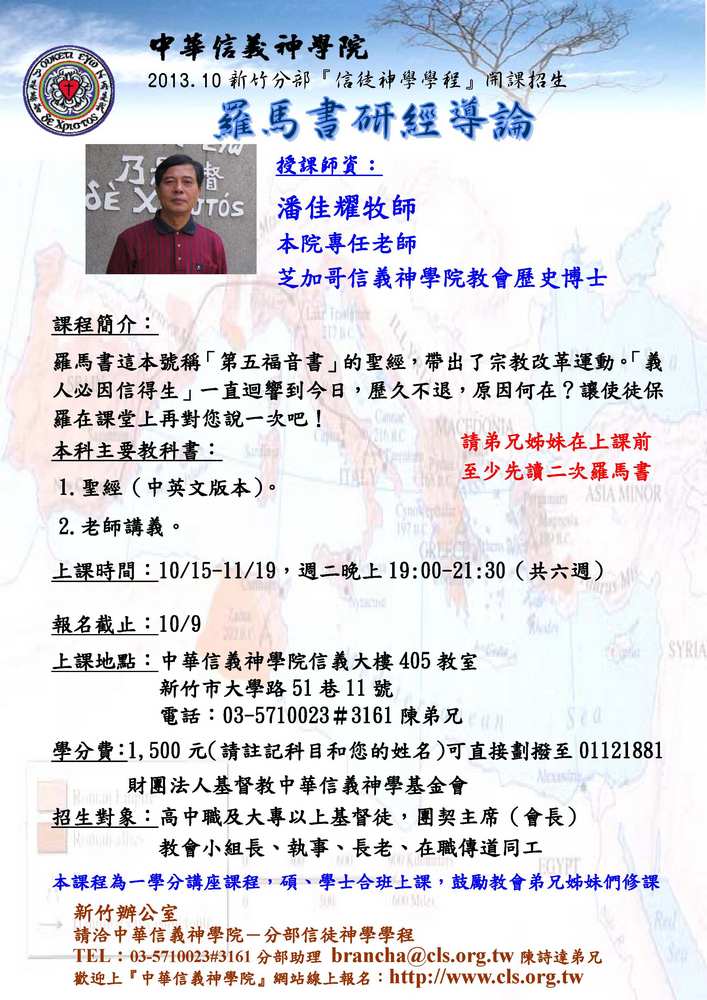 中華信義神學院
2013.10 新竹分部『信徒神學學程』開課招生
羅馬書研經導論
授課師資：
潘佳耀牧師
本院專任老師
芝加哥信義神學院教會歷史博士
課程簡介：
羅馬書這本號稱「第五福音書」的聖經，帶出了宗教改革運動。「義
人必因信得生」一直迴響到今日，歷久不退，原因何在？讓使徒保
羅在課堂上再對您說一次吧！
本科主要教科書：
請弟兄姊妹在上課前
至少先讀二次羅馬書
1. 聖經（中英文版本）。
2. 老師講義。
上課時間：10/15-11/19，週二晚上 19:00-21:30（共六週）
報名截止：10/9
上課地點：中華信義神學院信義大樓 405 教室
新竹市大學路 51 巷 11 號
電話：03-5710023＃3161 陳弟兄
學分費：1,500 元(請註記科目和您的姓名)可直接劃撥至 01121881
財團法人基督教中華信義神學基金會
招生對象：高中職及大專以上基督徒，團契主席（會長）
教會小組長、執事、長老、在職傳道同工
本課程為一學分講座課程，碩、學士合班上課，鼓勵教會弟兄姊妹們修課
新竹辦公室
請洽中華信義神學院－分部信徒神學學程
TEL：03-5710023#3161 分部助理 brancha@cls.org.tw 陳詩達弟兄
歡迎上『中華信義神學院』網站線上報名：http://www.cls.org.tw
MACEDONIA
ITALY
ASIA MINOR
GREECE
SYRIA
EGYPT